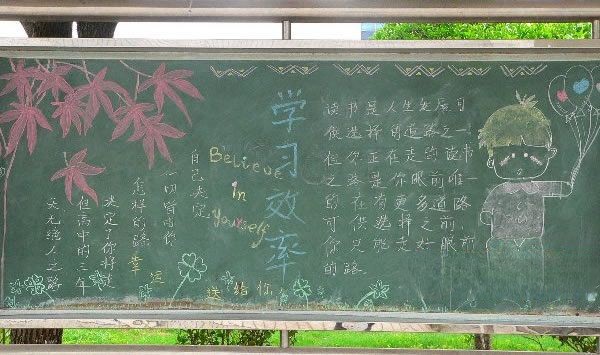 学习效率
Believe
in
Yourself
天无绝人之路
但高中的三年
决定了你将走
怎样的路
一切皆由你
自己决定
幸运
送给你
读书是人生发展可
供选择的道路之一
但你正在走的读书
之路是你眼前唯一
的 在 有更多道路
可供选择之前,
你只能走好眼前
的路